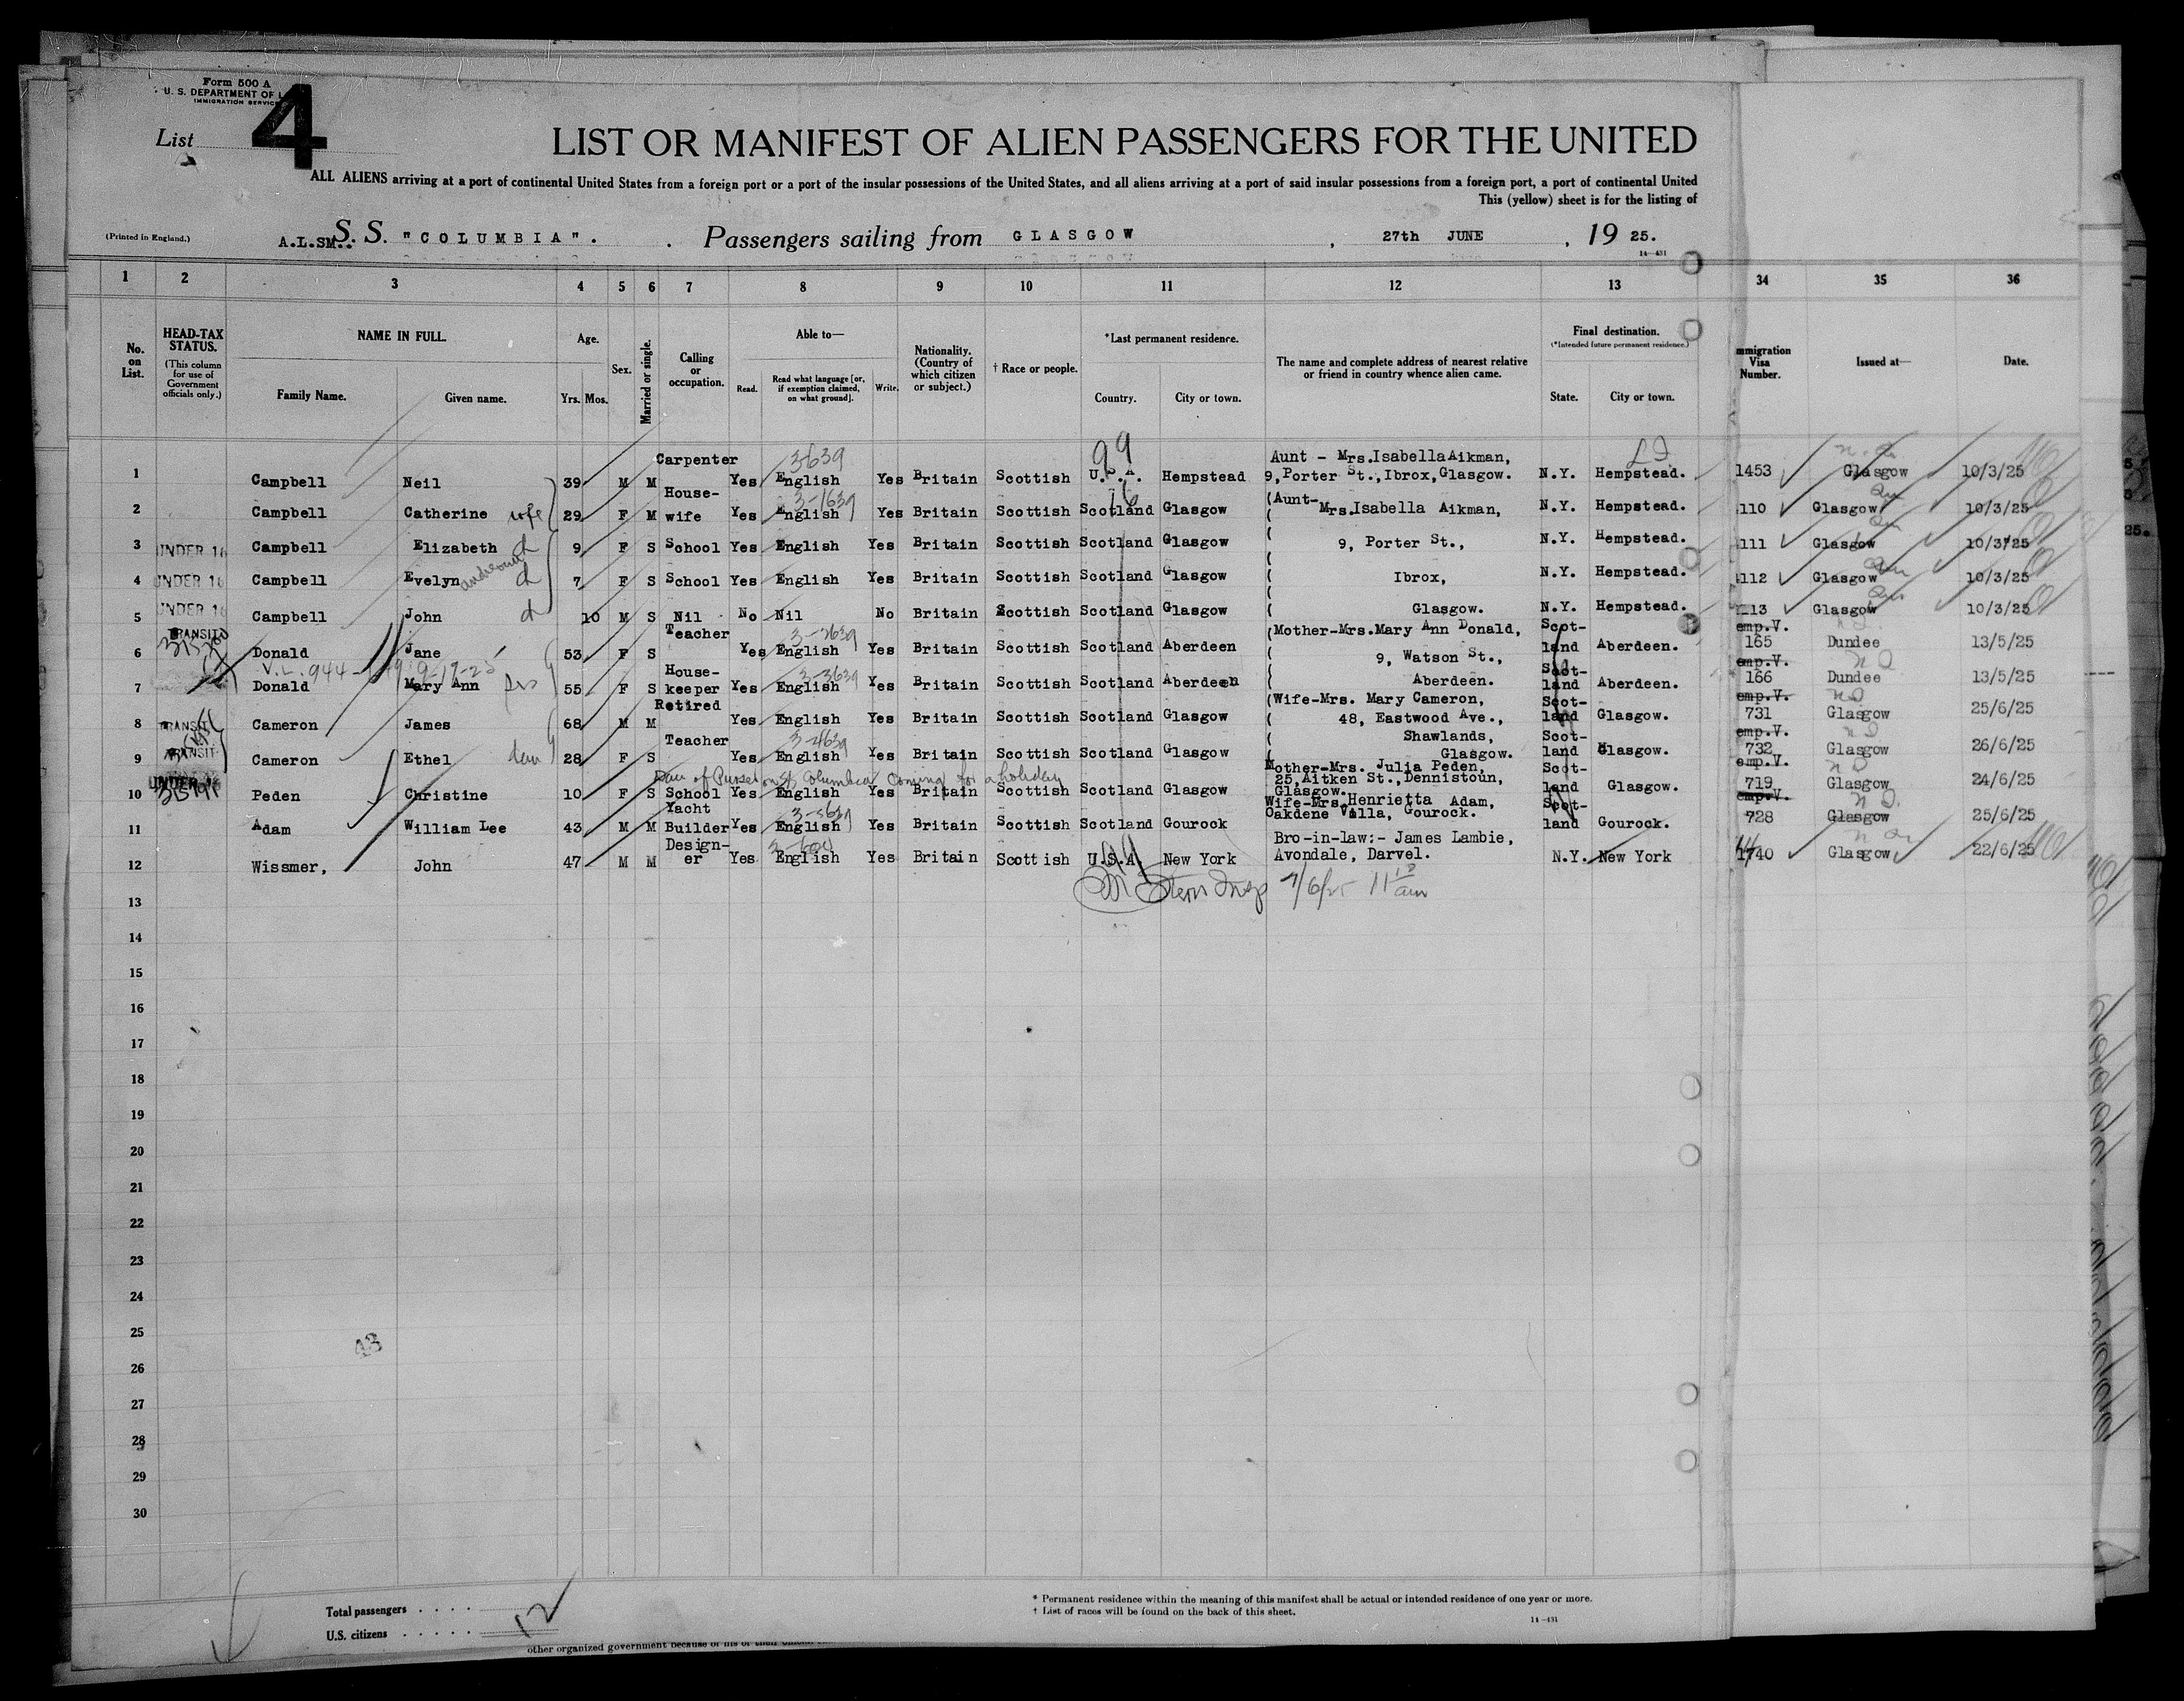 Form 500 A
U. S. DEPARTMENT OF L
IMMIGRATION SERVICE
List 4
LIST OR MANIFEST OF ALIEN PASSENGERS FOR THE UNITED
ALL ALIENS arriving at a port of continental United States from a foreign port or a port of the insular possessions of the United States, and all aliens arriving at a port of said insular possessions from a foreign port, a port of continental United
This (yellow) sheet is for the listing of
(Printed in England.) A.L.SM.. S. S. "COLUMBIA". Passengers sailing from GLASGOW, 27th JUNE, 19 25.
14—431
1 2 3 4 5 6 7 8 9 10 11 12 13 34 35 36
No. on List.
HEAD-TAX STATUS. (This column for use of Government officials only.)
NAME IN FULL. Family Name. Given name.
Age. Yrs. Mos.
Sex.
Married or single.
Calling or occupation.
Able to— Read. Read what language [or, if exemption claimed, on what ground]. Write.
Nationality. (Country of which citizen or subject.)
† Race or people.
*Last permanent residence. Country. City or town.
The name and complete address of nearest relative or friend in country whence alien came.
Final destination. (*Intended future permanent residence.) State. City or town.
mmigration Visa Number.
Issued at—
Date.
1 Campbell Neil 39 M M Carpenter Yes English 3-639 Yes Britain Scottish U.S.A. 99 Hempstead Aunt - Mrs.Isabella Aikman, 9,Porter St.,Ibrox,Glasgow. N.Y. Hempstead. 1453 Glasgow 10/3/25
2 Campbell Catherine wife 29 F M House-wife Yes English 3-1639 Yes Britain Scottish Scotland 76 Glasgow (Aunt- Mrs.Isabella Aikman, N.Y. Hempstead. 110 Glasgow 10/3/25
3 UNDER 16 Campbell Elizabeth d 9 F S School Yes English Yes Britain Scottish Scotland Glasgow ( 9, Porter St., N.Y. Hempstead. 111 Glasgow 10/3/25
4 UNDER 16 Campbell Evelyn d 7 F S School Yes English Yes Britain Scottish Scotland Glasgow ( Ibrox, N.Y. Hempstead. 112 Glasgow 10/3/25
5 UNDER 16 Campbell John d 10 M S Nil No Nil No Britain Scottish Scotland Glasgow ( Glasgow. N.Y. Hempstead. 113 Glasgow 10/3/25
6 TRANSIT Donald Jane 53 F S Teacher Yes English 3-2639 Yes Britain Scottish Scotland Aberdeen (Mother-Mrs.Mary Ann Donald, 9, Watson St., Scot-land Aberdeen. emp.V. 165 Dundee 13/5/25
7 Donald Mary Ann 55 F S House-keeper Yes English 3-3639 Yes Britain Scottish Scotland Aberdeen ( Aberdeen. Scot-land Aberdeen. emp.V. 166 Dundee 13/5/25
8 TRANSIT Cameron James 68 M M Retired Yes English Yes Britain Scottish Scotland Glasgow (Wife-Mrs. Mary Cameron, ( 48, Eastwood Ave., Scot-land Glasgow. emp.V. 731 Glasgow 25/6/25
9 TRANSIT Cameron Ethel dau 28 F S Teacher Yes English 3-4639 Yes Britain Scottish Scotland Glasgow ( Shawlands, ( Glasgow. Scot-land Glasgow. emp.V. 732 Glasgow 26/6/25
Dau of Purser on SS Columbia Coming for a holiday
10 UNDER 16 Peden Christine 10 F S School Yes English Yes Britain Scottish Scotland Glasgow Mother-Mrs. Julia Peden, 25,Aitken St.,Dennistoun, Glasgow. Scot-land Glasgow. emp.V. 719 Glasgow 24/6/25
11 Adam William Lee 43 M M Yacht Builder Yes English 3-5639 Yes Britain Scottish Scotland Gourock Wife-Mrs.Henrietta Adam, Oakdene Villa, Gourock. Scot-land Gourock. emp.V. 728 Glasgow 25/6/25
12 Wissmer, John 47 M M Design-er Yes English Yes Britain Scottish U.S.A. New York Bro-in-law:- James Lambie, Avondale, Darvel. N.Y. New York 1740 Glasgow 22/6/25
13
14
15
16
17
18
19
20
21
22
23
24
25
26
27
28
29
30
43
Total passengers . . . . 12
U.S. citizens . . . . .
* Permanent residence within the meaning of this manifest shall be actual or intended residence of one year or more.
† List of races will be found on the back of this sheet.
14—431
other organized government because of his or their